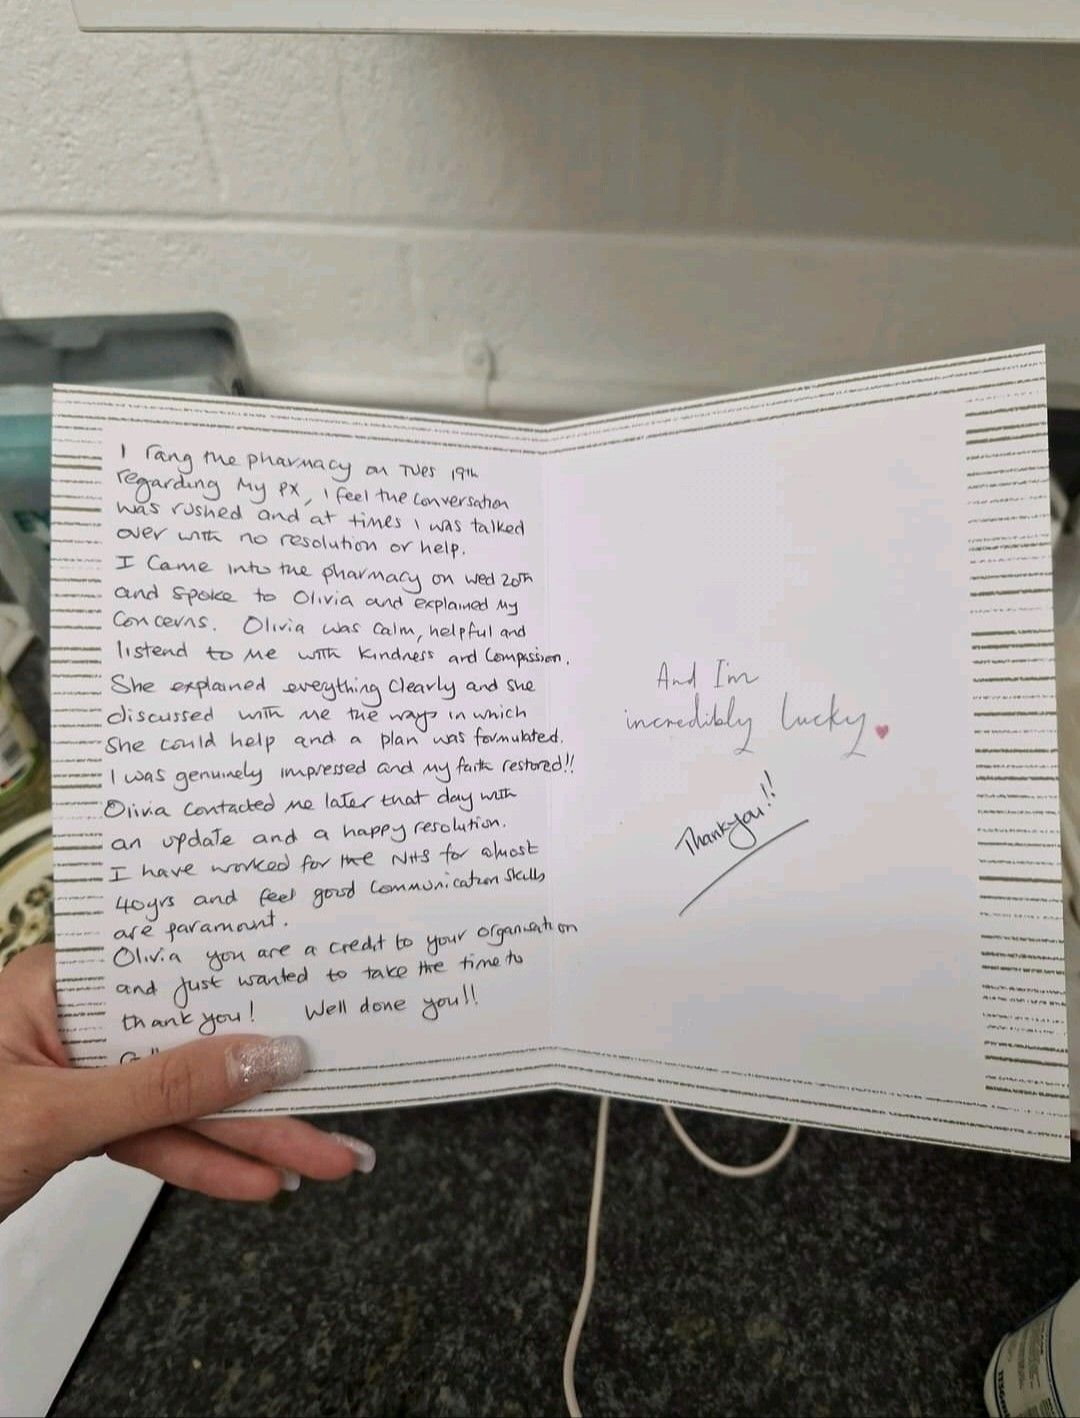 I rang the pharmacy on Tues 19th
regarding my PX, I feel the conversation
was rushed and at times I was talked
over with no resolution or help.
I came into the pharmacy on wed 20th
and spoke to Olivia and explained my
concerns. Olivia was calm, helpful and
listend to me with kindness and compassion.
She explained everything clearly and she
discussed with me the ways in which
she could help and a plan was formulated.
I was genuinely impressed and my faith restored!!
Olivia contacted me later that day with
an update and a happy resolution.
I have worked for the NHS for almost
40yrs and feel good communication skills
are paramount.
Olivia you are a credit to your organisation
and just wanted to take the time to
thank you! Well done you!!
And I'm
incredibly lucky
Thankyou!!